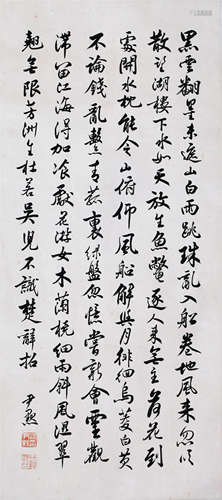 黑雲翻墨未遮山白雨跳珠亂入船卷地風来忽吹
散望湖樓下水如天放生魚鱉逐人来無主荷花到
處開水枕能令山俯仰風船解與月徘徊烏菱白芡
不論錢亂繫青菰裹綠盤忽憶嘗新會靈觀
滯留江海得加飡獻花游女木蘭橈細雨斜風濕翠
翹無限芳洲生杜若吳兒不識楚辭招
尹默